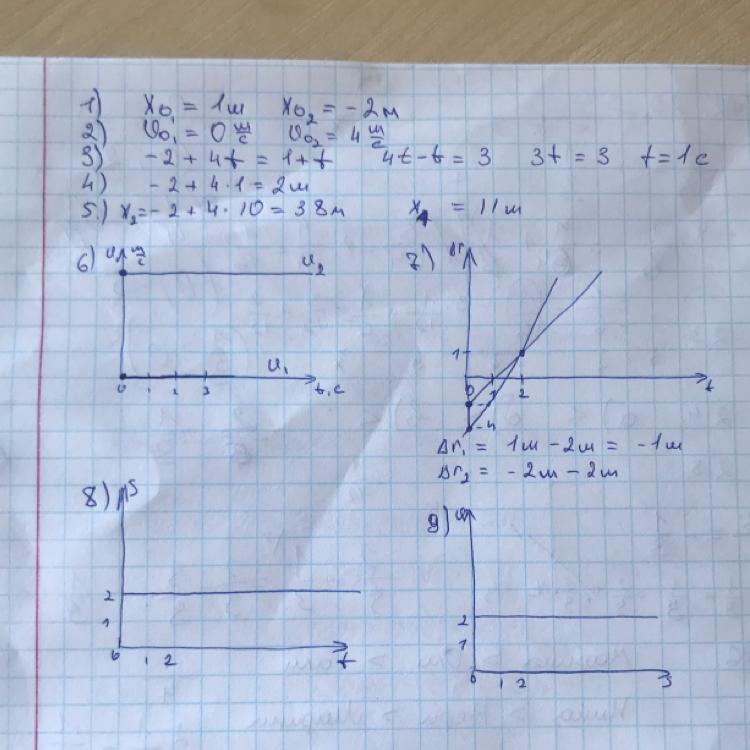 1) x₀₁ = 1м x₀₂ = -2м
2) υ₀₁ = 0 м/с υ₀₂ = 4 м/с
3) -2 + 4t = 1 + t 4t - t = 3 3t = 3 t = 1 c
4) -2 + 4 · 1 = 2м
5.) x₂ = -2 + 4 · 10 = 38м x₁ = 11м
6) υ м/с υ₂
υ₁
0 1 2 3 t, c
7) Δr
1
0 1 2 t
-4
Δr₁ = 1м - 2м = -1м
Δr₂ = -2м - 2м
8) S
2
1
0 1 2 t
9) υ
2
1
0 1 2 S